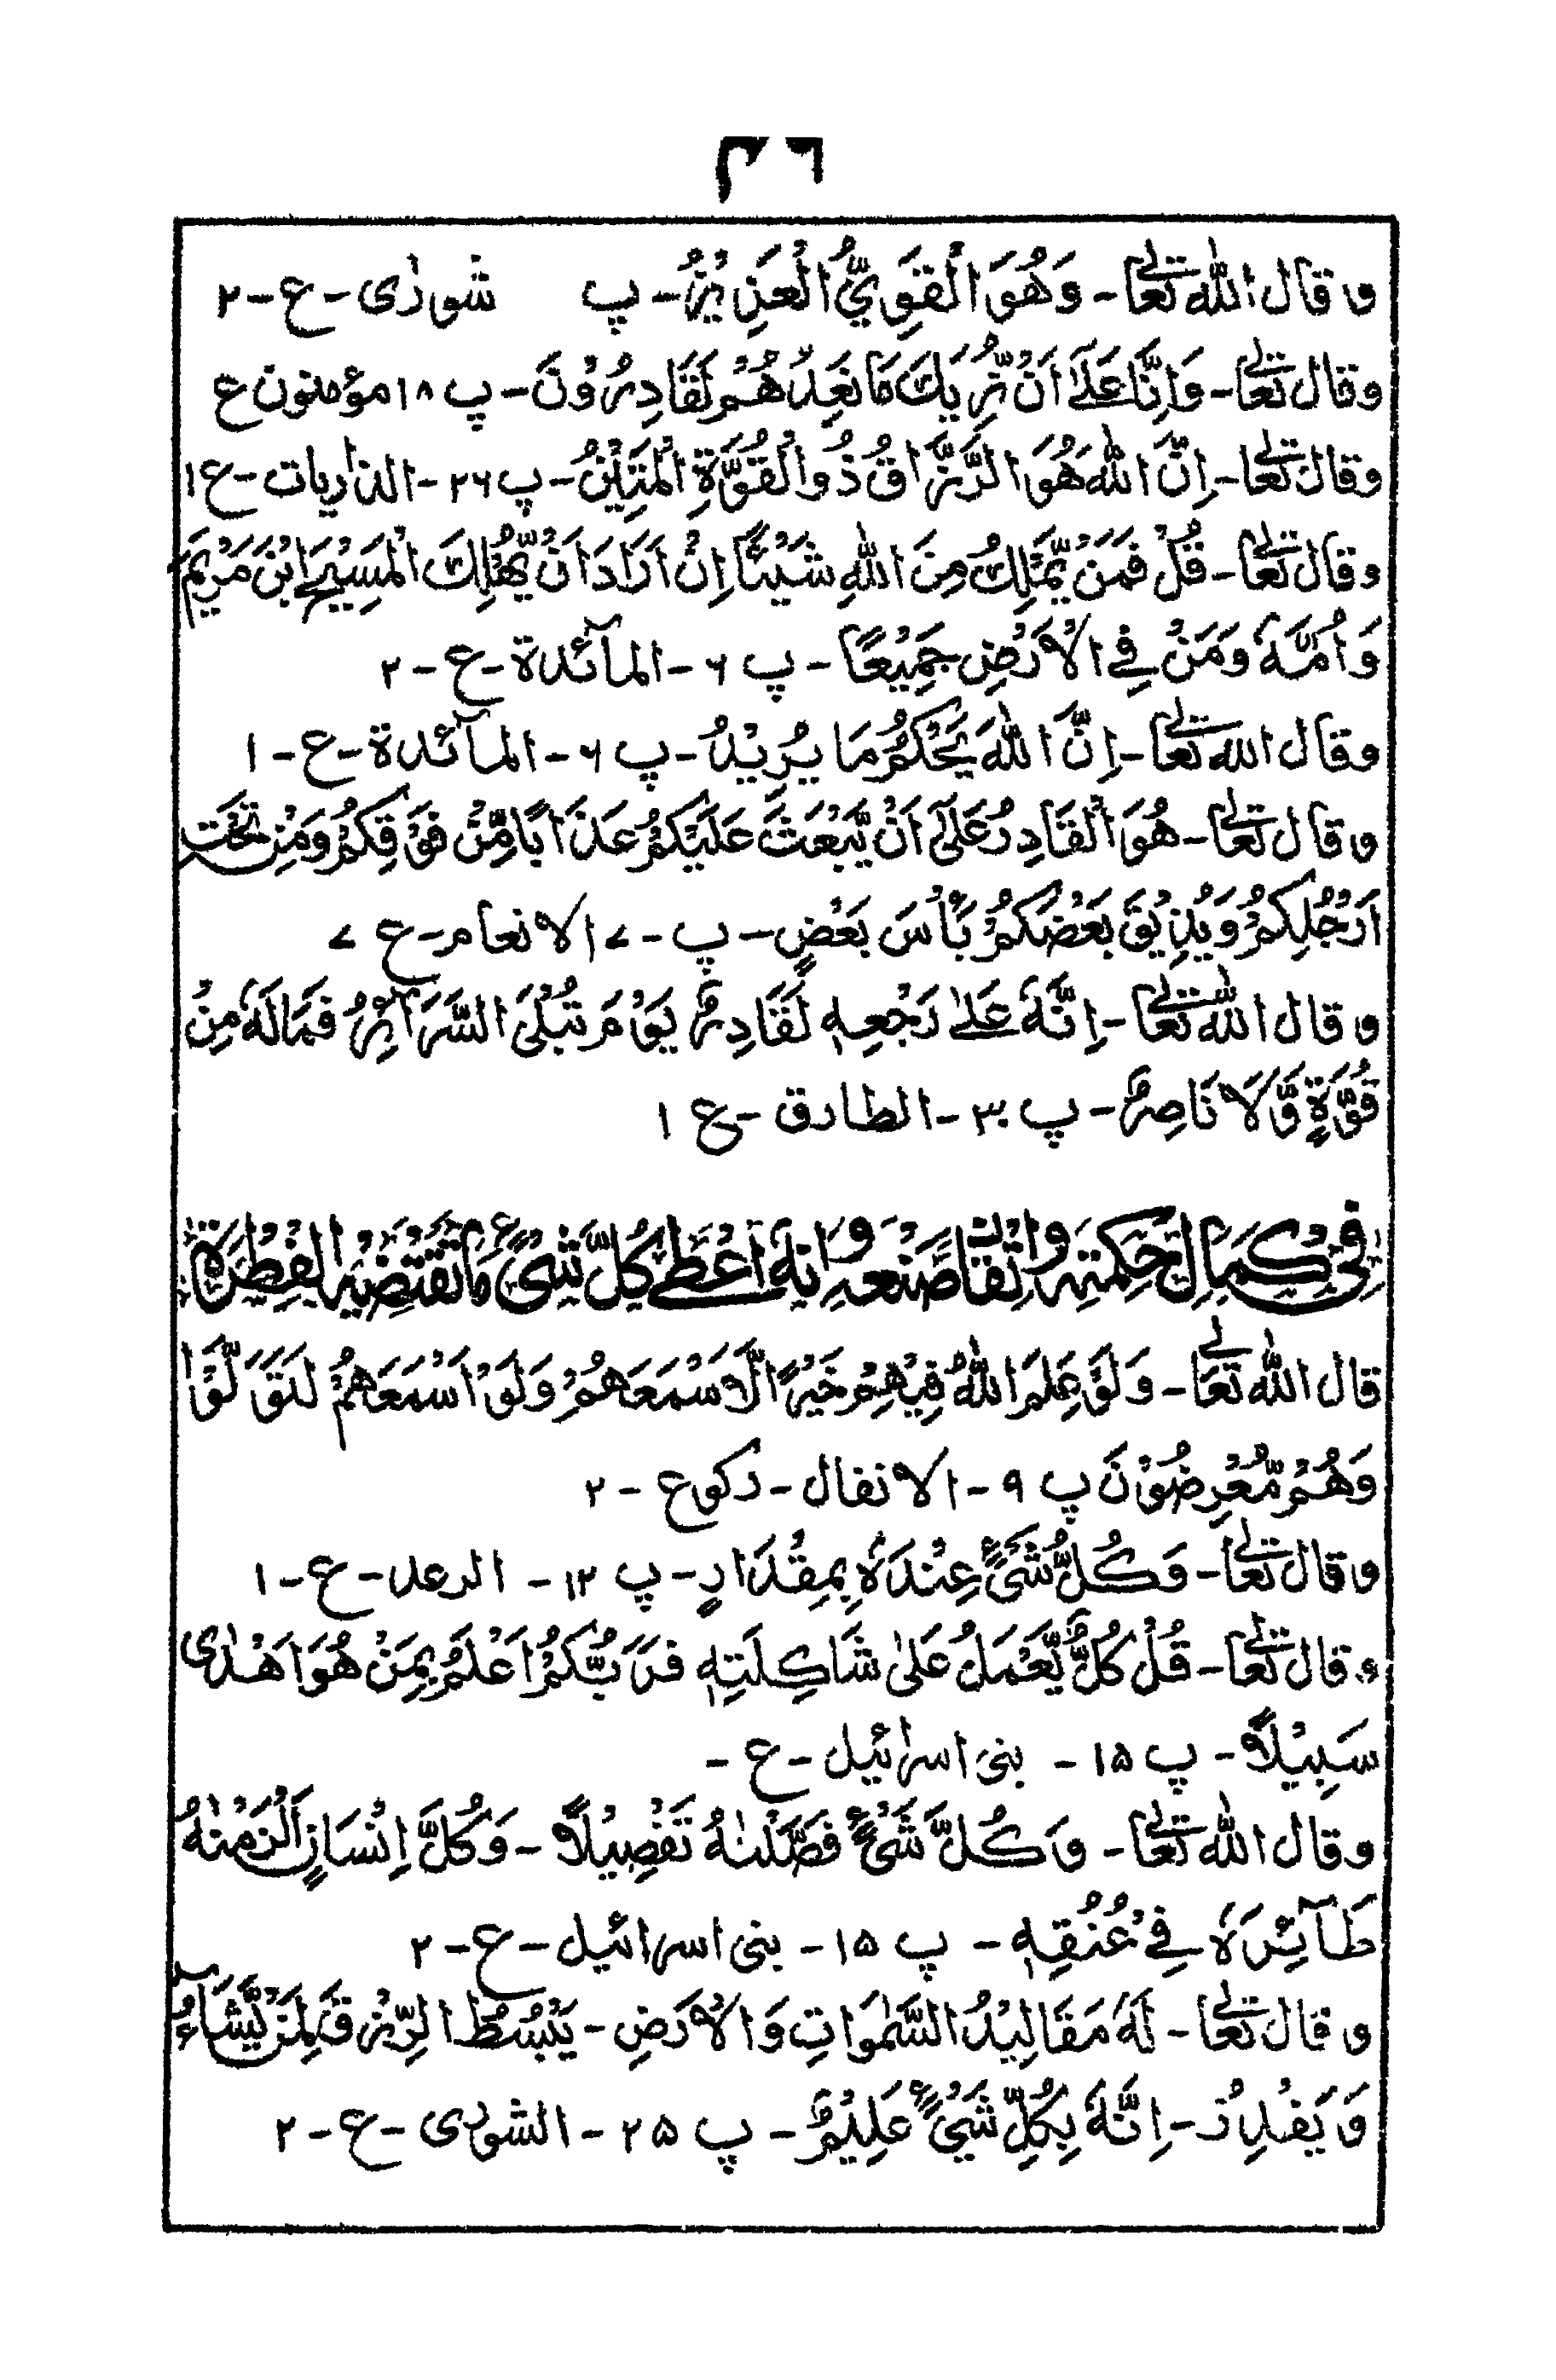 ٣٦
و قال الله تعالى - وَهُوَ الْقَوِيُّ الْعَزِيْزُ - پ شورٰى - ع - ٢
وقال تعالى - وَاِنَّا عَلٰى اَنْ نُّرِيَكَ مَا نَعِدُهُمْ لَقَادِرُوْنَ - پ ١٨ مؤمنون ع
وقال تعالى - اِنَّ اللهَ هُوَ الرَّزَّاقُ ذُو الْقُوَّةِ الْمَتِيْنُ - پ ٢٦ - الذاريات - ع ١
وقال تعالى - قُلْ فَمَنْ يَّمْلِكُ مِنَ اللهِ شَيْئًا اِنْ اَرَادَ اَنْ يُّهْلِكَ الْمَسِيْحَ ابْنَ مَرْيَمَ
وَاُمَّهٗ وَمَنْ فِي الْاَرْضِ جَمِيْعًا - پ ٦ - المآئدة - ع - ٢
وقال الله تعالى - اِنَّ اللهَ يَحْكُمُ مَا يُرِيْدُ - پ ٦ - المآئدة - ع - ١
و قال تعالى - هُوَ الْقَادِرُ عَلٰٓى اَنْ يَّبْعَثَ عَلَيْكُمْ عَذَابًا مِّنْ فَوْقِكُمْ وَمِنْ تَحْتِ
اَرْجُلِكُمْ وَيُذِيْقَ بَعْضَكُمْ بَاْسَ بَعْضٍ - پ - ٧ الانعام - ع ٧
و قال الله تعالى - اِنَّهٗ عَلٰى رَجْعِهٖ لَقَادِرٌ يَوْمَ تُبْلَى السَّرَآئِرُ فَمَا لَهٗ مِنْ
قُوَّةٍ وَّلَا نَاصِرٍ - پ ٣٠ - الطارق - ع ١
فى كمال حكمته واتقان صنعه وانه اعطى كل شىء ما تقتضيه الفطرة
قال الله تعالى - وَلَوْ عَلِمَ اللهُ فِيْهِمْ خَيْرًا لَّاَسْمَعَهُمْ وَلَوْ اَسْمَعَهُمْ لَتَوَلَّوْا
وَهُمْ مُّعْرِضُوْنَ پ ٩ - الانفال - ركوع - ٢
و قال تعالى - وَكُلُّ شَىْءٍ عِنْدَهٗ بِمِقْدَارٍ - پ ١٣ - الرعد - ع - ١
وقال تعالى - قُلْ كُلٌّ يَّعْمَلُ عَلٰى شَاكِلَتِهٖ فَرَبُّكُمْ اَعْلَمُ بِمَنْ هُوَ اَهْدٰى
سَبِيْلًا - پ ١٥ - بنى اسرائيل - ع -
وقال الله تعالى - وَكُلَّ شَىْءٍ فَصَّلْنٰهُ تَفْصِيْلًا - وَكُلَّ اِنْسَانٍ اَلْزَمْنٰهُ
طَآئِرَهٗ فِيْ عُنُقِهٖ - پ ١٥ - بنى اسرائيل - ع - ٢
و قال تعالى - لَهٗ مَقَالِيْدُ السَّمٰوَاتِ وَالْاَرْضِ - يَبْسُطُ الرِّزْقَ لِمَنْ يَّشَآءُ
وَيَقْدِرُ - اِنَّهٗ بِكُلِّ شَيْءٍ عَلِيْمٌ - پ ٢٥ - الشورى - ع - ٢